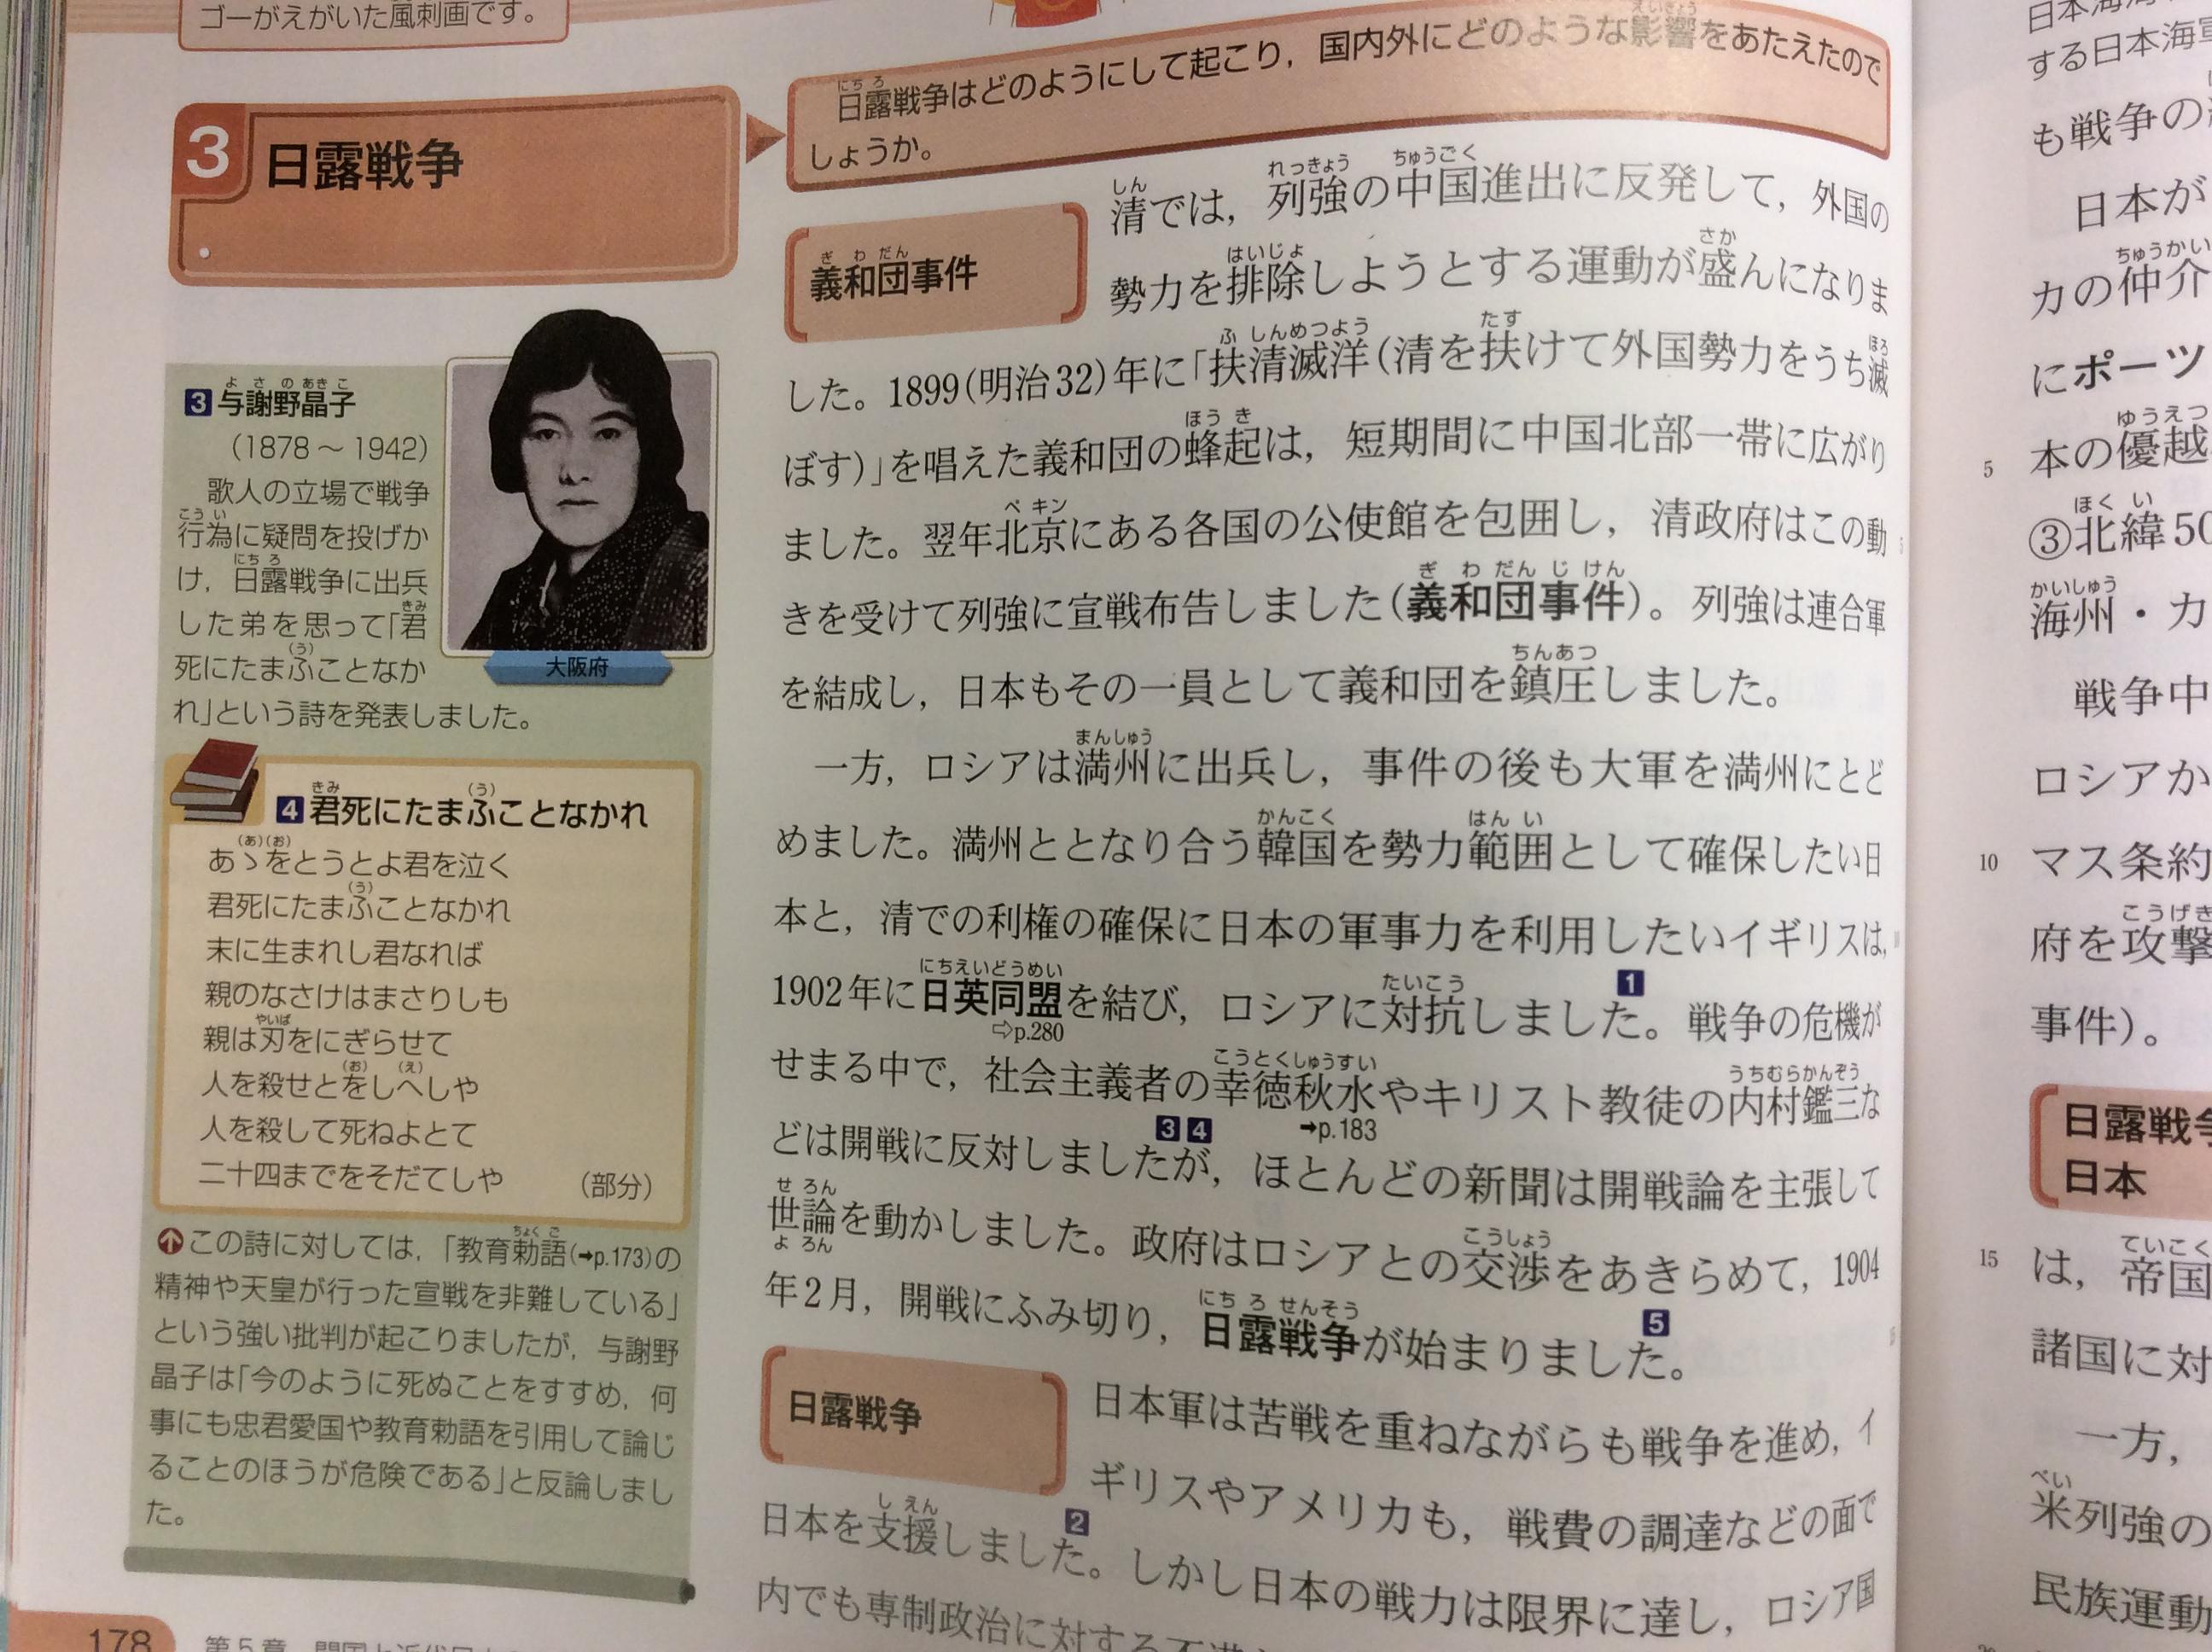 ゴーがえがいた風刺画です。
3 日露戦争
日露戦争はどのようにして起こり，国内外にどのような影響をあたえたので
しょうか。
3 与謝野晶子
(1878～1942)
歌人の立場で戦争
行為に疑問を投げか
け，日露戦争に出兵
した弟を思って「君
死にたまふことなか
れ」という詩を発表しました。
大阪府
4 君死にたまふことなかれ
あゝをとうとよ君を泣く
君死にたまふことなかれ
末に生まれし君なれば
親のなさけはまさりしも
親は刃をにぎらせて
人を殺せとをしへしや
人を殺して死ねよとて
二十四までをそだてしや (部分)
この詩に対しては，「教育勅語(➡p.173)の
精神や天皇が行った宣戦を非難している」
という強い批判が起こりましたが，与謝野
晶子は「今のように死ぬことをすすめ，何
事にも忠君愛国や教育勅語を引用して論じ
ることのほうが危険である」と反論しまし
た。
178
義和団事件
清では，列強の中国進出に反発して，外国の
勢力を排除しようとする運動が盛んになりま
した。1899(明治32)年に「扶清滅洋(清を扶けて外国勢力をうち滅
ぼす)」を唱えた義和団の蜂起は，短期間に中国北部一帯に広がり
ました。翌年北京にある各国の公使館を包囲し，清政府はこの動
きを受けて列強に宣戦布告しました(義和団事件)。列強は連合軍
を結成し，日本もその一員として義和団を鎮圧しました。
一方，ロシアは満州に出兵し，事件の後も大軍を満州にとど
めました。満州ととなり合う韓国を勢力範囲として確保したい日
本と，清での利権の確保に日本の軍事力を利用したいイギリスは，
1902年に日英同盟を結び，ロシアに対抗しました。1 戦争の危機が
⇨p.280
せまる中で，社会主義者の幸徳秋水やキリスト教徒の内村鑑三な
➡p.183
どは開戦に反対しました3 4が，ほとんどの新聞は開戦論を主張して
世論を動かしました。政府はロシアとの交渉をあきらめて，1904
年2月，開戦にふみ切り，日露戦争が始まりました。5
日露戦争
日本軍は苦戦を重ねながらも戦争を進め，イ
ギリスやアメリカも，戦費の調達などの面で
日本を支援しました。2 しかし日本の戦力は限界に達し，ロシア国
内でも専制政治に対する
する日本海軍
も戦争の
日本が
力の仲介
にポーツ
5 本の優越
③北緯50
海州・カ
戦争中
ロシアか
10 マス条約
府を攻撃
事件)。
日露戦争
日本
15 は，帝国
諸国に対
一方，
米列強の
民族運動